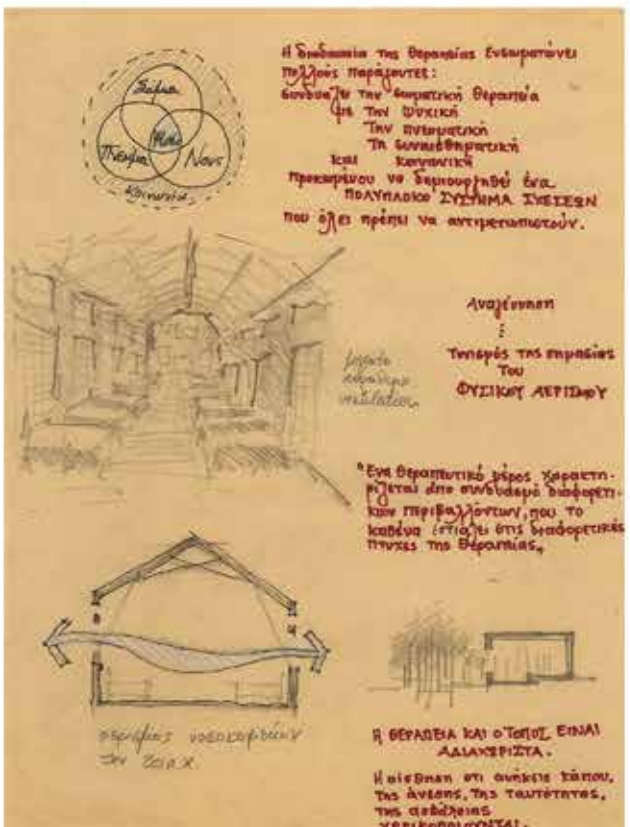 Σώμα
Πνεύμα
Νους
Κοινωνία
Η διαδικασία της θεραπείας ενσωματώνει
πολλούς παράγοντες:
συνδυάζει την σωματική θεραπεία
με την ψυχική
την πνευματική
τη συναισθηματική
και κοινωνική
προκειμένου να δημιουργηθεί ένα
ΠΟΛΥΠΛΟΚΟ ΣΥΣΤΗΜΑ ΣΧΕΣΕΩΝ
που όλες πρέπει να αντιμετωπιστούν.
Αναγέννηση
:
Τονισμός της σημασίας
του
ΦΥΣΙΚΟΥ ΑΕΡΙΣΜΟΥ
Ένα θεραπευτικό μέρος χαρακτη-
ρίζεται απο συνδυασμό διαφορετι-
κών περιβαλλόντων, που το
καθένα εστιάζει στις διαφορετικές
πτυχές της θεραπείας.
αερισμός νοσοκομείων
τον
Η ΘΕΡΑΠΕΙΑ ΚΑΙ Ο ΤΟΠΟΣ ΕΙΝΑΙ
ΑΔΙΑΧΩΡΙΣΤΑ.
Η αίσθηση οτι ανήκεις κάπου,
της άνεσης, της ταυτότητας,
της ασφάλειας